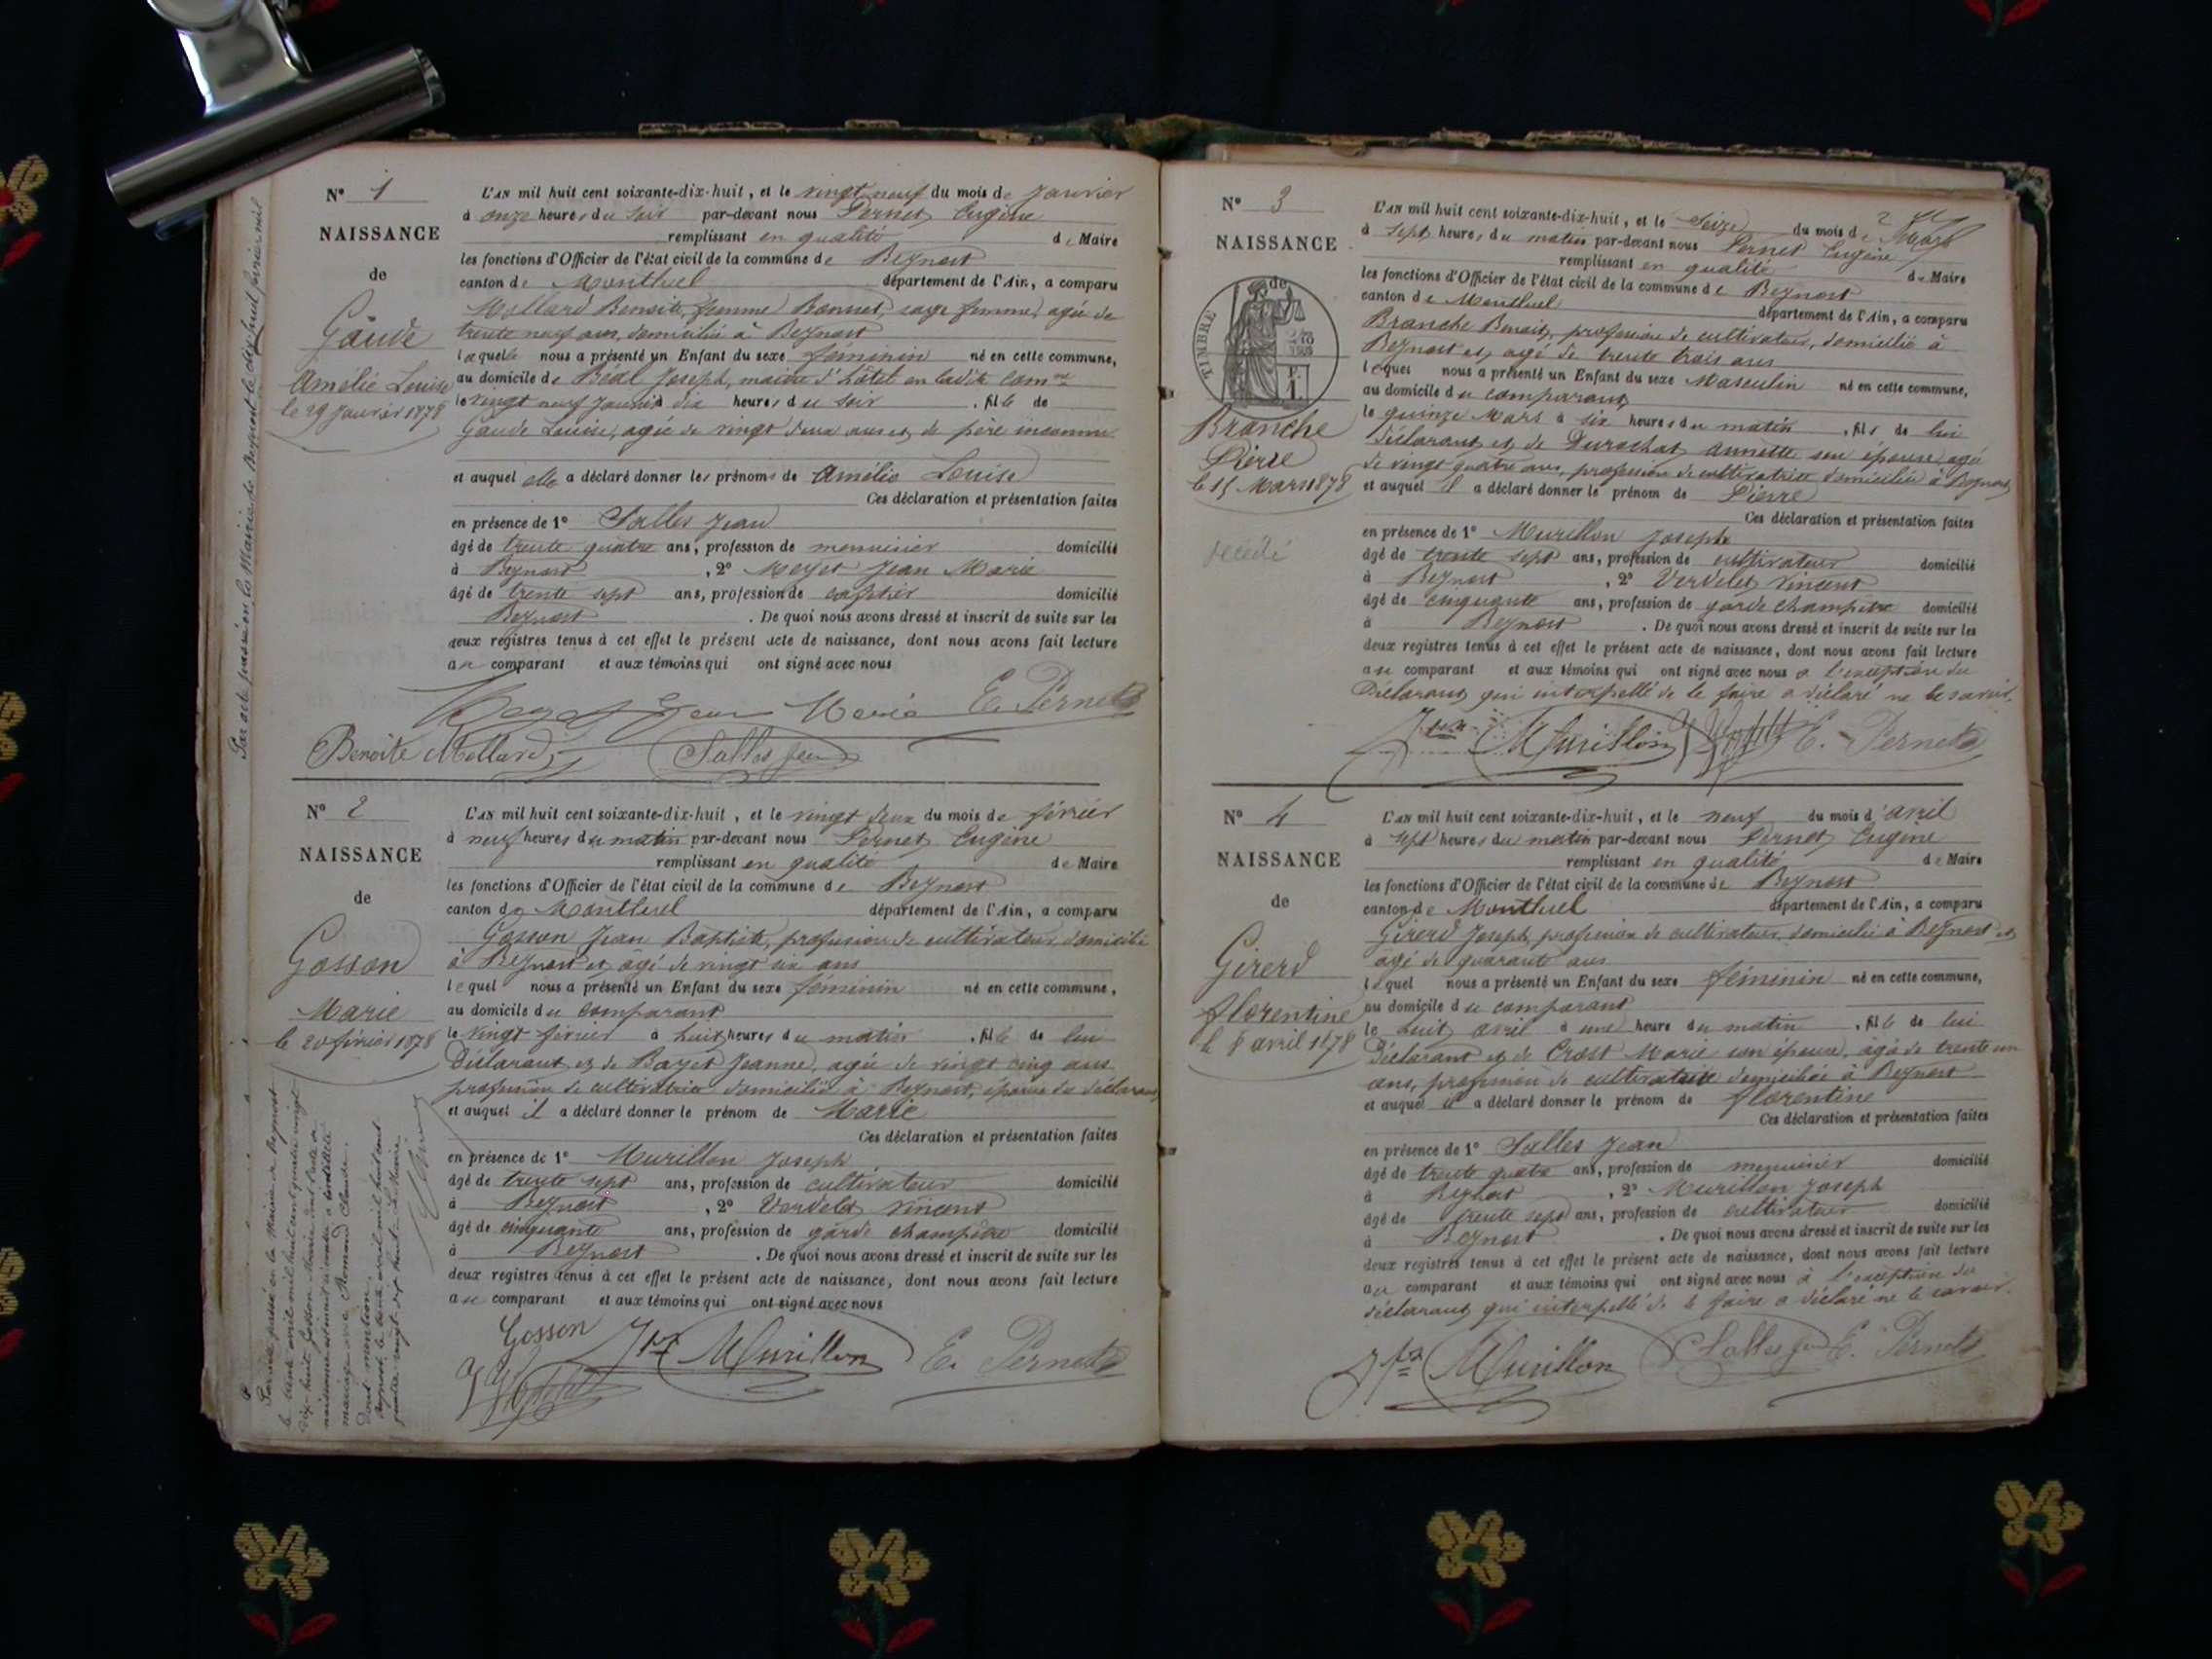 N° 1
NAISSANCE
de
Gaude
Amélie Louise
le 29 janvier 1878
Par acte passé en la Mairie de Beynost le dix huit février mil
L'AN mil huit cent soixante-dix-huit, et le vingt neuf du mois de Janvier
à onze heures du soir par-devant nous Pernet Eugène
remplissant en qualité de Maire
les fonctions d'Officier de l'état civil de la commune de Beynost
canton de Montluel département de l'Ain, a comparu
Mollard Benoite, femme Bonnet, sage femme, agée de
trente neuf ans, domiciliée à Beynost
laquelle nous a présenté un Enfant du sexe féminin né en cette commune,
au domicile de Béal Joseph, maître d'hôtel en ladite comne
le vingt neuf Janvier dix heures du soir, fille de
Gaude Louise, agée de vingt deux ans et de père inconnu
et auquel elle a déclaré donner les prénoms de Amélie Louise
Ces déclaration et présentation faites
en présence de 1° Salles Jean
âgé de trente quatre ans, profession de menuisier domicilié
à Beynost, 2° Meyet Jean Marie
âgé de trente sept ans, profession de domicilié
Beynost. De quoi nous avons dressé et inscrit de suite sur les
deux registres tenus à cet effet le présent acte de naissance, dont nous avons fait lecture
au comparant et aux témoins qui ont signé avec nous
Meyet Jean Marie E. Pernet
Benoite Mollard Salles Jean
N° 2
NAISSANCE
de
Gosson
Marie
le 20 février 1878
L'AN mil huit cent soixante-dix-huit, et le vingt deux du mois de février
à neuf heures du matin par-devant nous Pernet Eugène
remplissant en qualité de Maire
les fonctions d'Officier de l'état civil de la commune de Beynost
canton de Montluel département de l'Ain, a comparu
Gosson Jean Baptiste, profession de cultivateur, domicilié
à Beynost et âgé de vingt six ans
lequel nous a présenté un Enfant du sexe féminin né en cette commune,
au domicile du comparant
le vingt février à huit heures du matin, fille de lui
Déclarant et de Bazet Jeanne, agée de vingt cinq ans
profession de cultivatrice domiciliée à Beynost, épouse du déclarant,
et auquel il a déclaré donner le prénom de Marie
Ces déclaration et présentation faites
en présence de 1° Murillon Joseph
âgé de trente sept ans, profession de cultivateur domicilié
à Beynost, 2° Verdelet Vincent
âgé de cinquante ans, profession de garde champêtre domicilié
à Beynost. De quoi nous avons dressé et inscrit de suite sur les
deux registres tenus à cet effet le présent acte de naissance, dont nous avons fait lecture
au comparant et aux témoins qui ont signé avec nous
Gosson Murillon E. Pernet
Par acte passé en la Mairie de Beynost
le trente avril mil huit cent quatre vingt
dix-huit Gosson Marie dont l'acte de
naissance est mentionné ci-contre a contracté
mariage avec Romand Claude.
Dont mention.
Beynost, le trente avril mil huit cent
quatre vingt-dix huit. Le Maire
N° 3
NAISSANCE
de
TIMBRE
Branche
Pierre
le 15 Mars 1878
décédé
L'AN mil huit cent soixante-dix-huit, et le seize du mois de Mars
à sept heures du matin par-devant nous Pernet Eugène
remplissant en qualité de Maire
les fonctions d'Officier de l'état civil de la commune de Beynost
canton de Montluel département de l'Ain, a comparu
Branche Benoit, profession de cultivateur, domicilié à
Beynost et agé de trente trois ans
lequel nous a présenté un Enfant du sexe Masculin né en cette commune,
au domicile du comparant,
le quinze Mars à six heures du matin, fils de lui
Déclarant et de Durochat Annette son épouse, agée
de vingt quatre ans, profession de cultivatrice domiciliée à Beynost
et auquel il a déclaré donner le prénom de Pierre
Ces déclaration et présentation faites
en présence de 1° Murillon Joseph
âgé de trente sept ans, profession de cultivateur domicilié
à Beynost, 2° Verdelet Vincent
âgé de cinquante ans, profession de garde champêtre domicilié
à Beynost. De quoi nous avons dressé et inscrit de suite sur les
deux registres tenus à cet effet le présent acte de naissance, dont nous avons fait lecture
au comparant et aux témoins qui ont signé avec nous a l'exception du
Déclarant, qui interpellé de le faire a déclaré ne le savoir.
Murillon E. Pernet
N° 4
NAISSANCE
de
Girerd
florentine
le 8 avril 1878
L'AN mil huit cent soixante-dix-huit, et le neuf du mois d'avril
à sept heures du matin par-devant nous Pernet Eugène
remplissant en qualité de Maire
les fonctions d'Officier de l'état civil de la commune de Beynost
canton de Montluel département de l'Ain, a comparu
Girerd Joseph, profession de cultivateur, domicilié à Beynost et
agé de quarante ans
lequel nous a présenté un Enfant du sexe féminin né en cette commune,
au domicile du comparant
le huit avril à une heure du matin, fille de lui
Déclarant et de Crost Marie son épouse, agée de trente un
ans, profession de cultivatrice domiciliée à Beynost
et auquel il a déclaré donner le prénom de florentine
Ces déclaration et présentation faites
en présence de 1° Salles Jean
âgé de trente quatre ans, profession de menuisier domicilié
à Beynost, 2° Murillon Joseph
âgé de trente sept ans, profession de cultivateur domicilié
à Beynost. De quoi nous avons dressé et inscrit de suite sur les
deux registres tenus à cet effet le présent acte de naissance, dont nous avons fait lecture
au comparant et aux témoins qui ont signé avec nous à l'exception du
déclarant, qui interpellé de le faire a déclaré ne le savoir.
Murillon Salles Jean E. Pernet